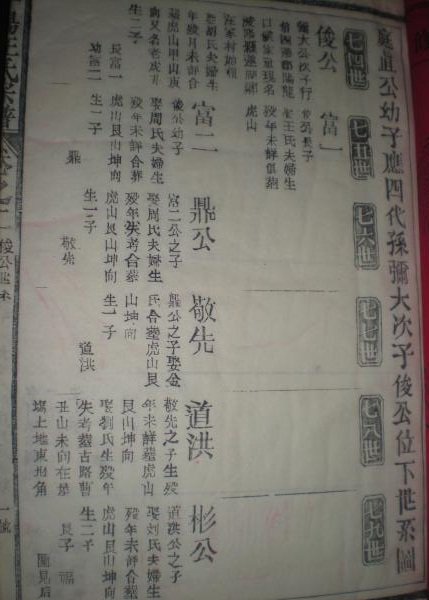 庭直公幼子應四代孫彌大次子俊公位下世系圖
七四世
七五世
七六世
七七世
七八世
七九世
俊公
彌大公次子行
娶胡氏夫婦生
生二子
長富一
幼富二
富一
俊公長子
娶王氏夫婦生
歿年未詳俱葬
虎山
富二
俊公幼子
娶周氏夫婦生
歿年未詳合葬
虎山艮山坤向
生一子
鼎
鼎公
富二公之子
娶周氏夫婦生
歿年失考合葬
虎山艮山坤向
生一子
敬先
敬先
鼎公之子娶金
氏合葬虎山艮
山坤向
生一子
道洪
道洪
敬先之子生歿
年未詳葬虎山
艮山坤向
娶劉氏生歿年
失考葬古路曹
丑山未向在是
塲上墈東北角
彬公
道洪公之子
娶刘氏夫婦生
歿年未詳合葬
虎山艮山坤向
生二子
長子福
圖見后
王氏宗譜
俊公